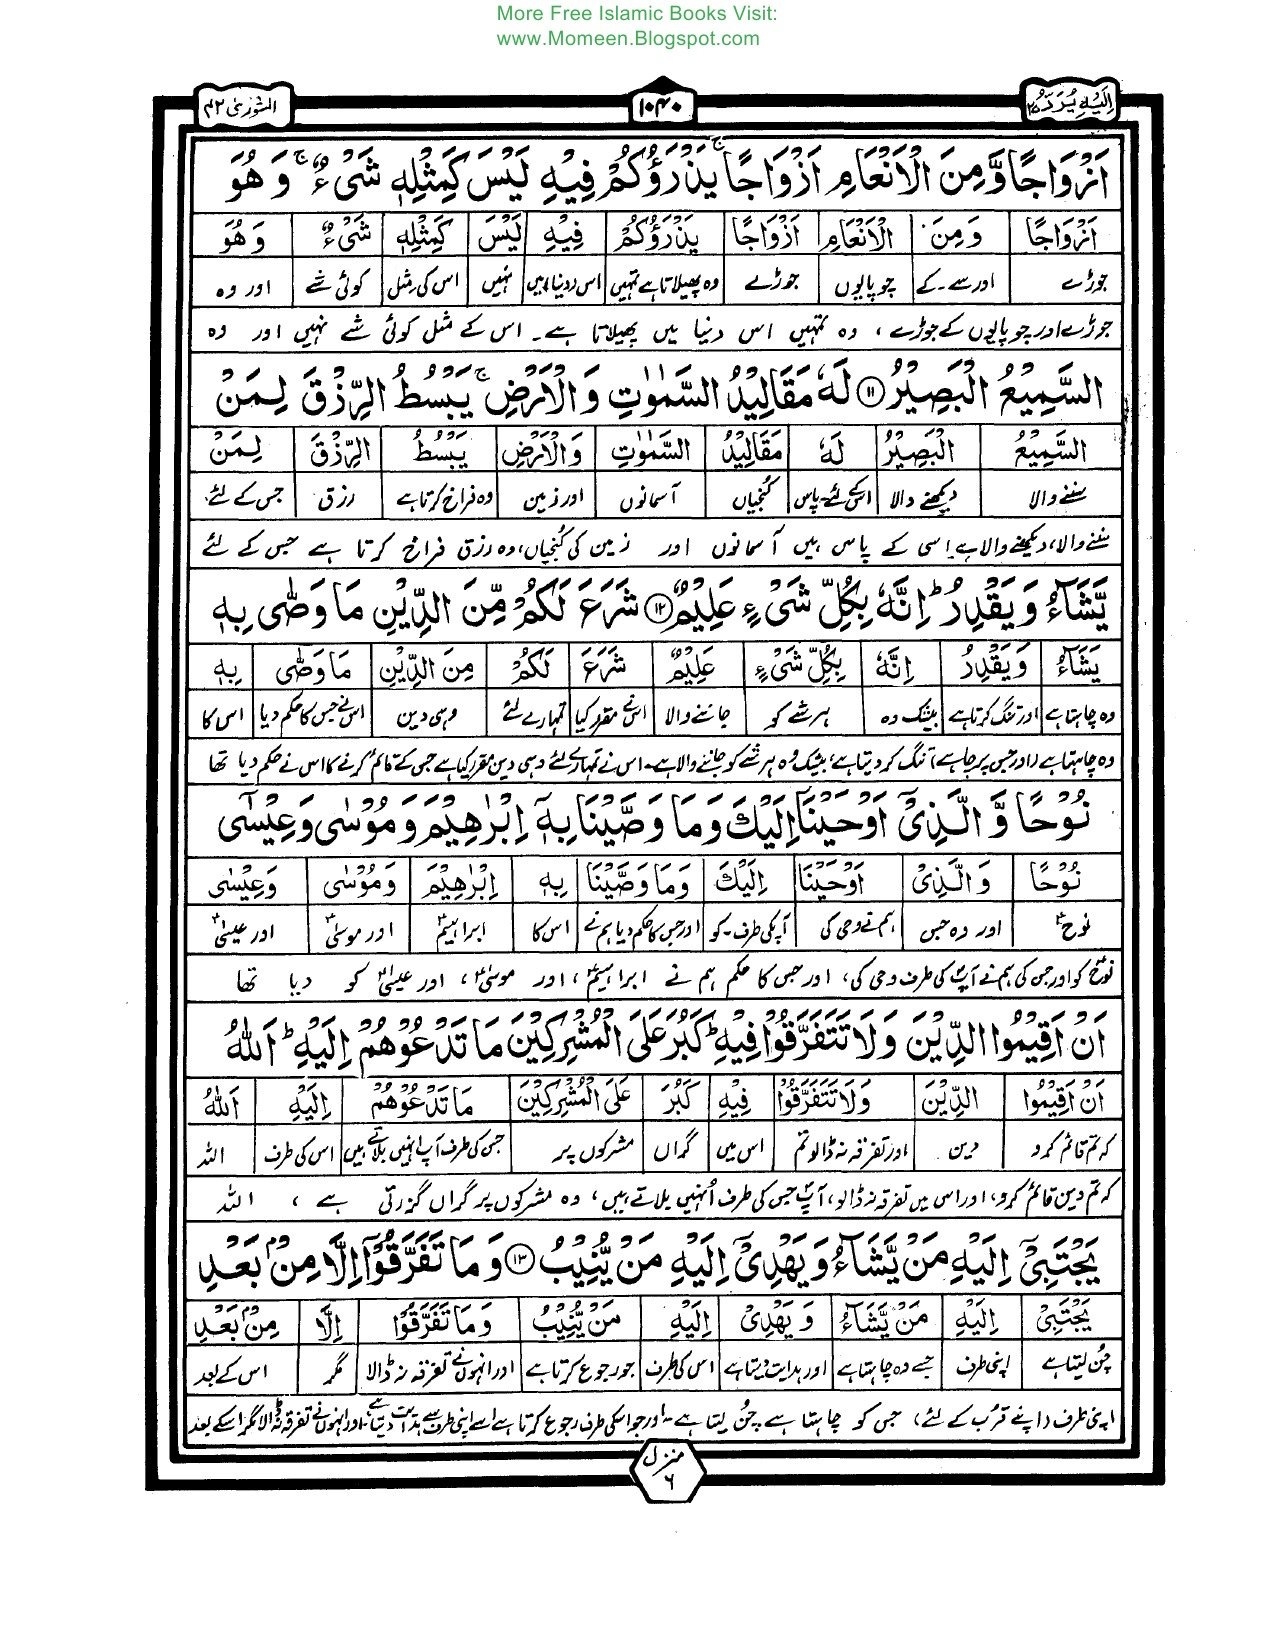 More Free Islamic Books Visit:
www.Momeen.Blogspot.com
اِلَیْهِ یُرَدُّ ۲۵
۱۰۴۰
الشورٰی ۴۲
اَزْوَاجًا وَّمِنَ الْاَنْعَامِ اَزْوَاجًا ۚ یَذْرَؤُكُمْ فِیْهِ لَیْسَ كَمِثْلِهٖ شَیْءٌ ۚ وَهُوَ
اَزْوَاجًا وَمِنَ الْاَنْعَامِ اَزْوَاجًا یَذْرَؤُكُمْ فِیْهِ لَیْسَ كَمِثْلِهٖ شَیْءٌ وَهُوَ
جوڑے اور سے ۔ کے چوپایوں جوڑے وہ پھیلاتا ہے تمہیں اس (دنیا) میں نہیں اس کی مثل کوئی شے اور وہ
جوڑے اور چوپایوں کے جوڑے، وہ تمہیں اس دنیا میں پھیلاتا ہے۔ اس کے مثل کوئی شے نہیں اور وہ
السَّمِیْعُ الْبَصِیْرُ ۱۱ لَهٗ مَقَالِیْدُ السَّمٰوٰتِ وَالْاَرْضِ ۚ یَبْسُطُ الرِّزْقَ لِمَنْ
السَّمِیْعُ الْبَصِیْرُ لَهٗ مَقَالِیْدُ السَّمٰوٰتِ وَالْاَرْضِ یَبْسُطُ الرِّزْقَ لِمَنْ
سننے والا دیکھنے والا اسکے لئے۔پاس کنجیاں آسمانوں اور زمین وہ فراخ کرتا ہے رزق جس کے لئے
سننے والا، دیکھنے والا ہے، اسی کے پاس ہیں آسمانوں اور زمین کی کنجیاں، وہ رزق فراخ کرتا ہے جس کے لئے
یَّشَآءُ وَیَقْدِرُ ؕ اِنَّهٗ بِكُلِّ شَیْءٍ عَلِیْمٌ ۱۲ شَرَعَ لَكُمْ مِّنَ الدِّیْنِ مَا وَصّٰی بِهٖ
یَشَآءُ وَیَقْدِرُ اِنَّهٗ بِكُلِّ شَیْءٍ عَلِیْمٌ شَرَعَ لَكُمْ مِنَ الدِّیْنِ مَا وَصّٰی بِهٖ
وہ چاہتا ہے اور تنگ کرتا ہے بیشک وہ ہر شے کو جاننے والا اس نے مقرر کیا تمہارے لئے وہی دین اس نے جس کا حکم دیا اس کا
وہ چاہتا ہے (اور جس پر چاہے) تنگ کر دیتا ہے، بیشک وہ ہر شے کو جاننے والا ہے۔ اس نے تمہارے لئے وہی دین مقرر کیا ہے جس کے قائم کرنے کا اس نے حکم دیا تھا
نُوْحًا وَّالَّذِیْۤ اَوْحَیْنَاۤ اِلَیْكَ وَمَا وَصَّیْنَا بِهٖۤ اِبْرٰهِیْمَ وَمُوْسٰی وَعِیْسٰۤی
نُوْحًا وَالَّذِیْ اَوْحَیْنَا اِلَیْكَ وَمَا وَصَّیْنَا بِهٖ اِبْرٰهِیْمَ وَمُوْسٰی وَعِیْسٰی
نوحؑ اور وہ جس ہم نے وحی کی آپکی طرف۔کو اور جس کا حکم دیا ہم نے اس کا ابراہیمؑ اور موسیٰؑ اور عیسیٰؑ
نوحؑ کو اور جس کی ہم نے آپؐ کی طرف وحی کی، اور جس کا حکم ہم نے ابراہیمؑ، اور موسیٰؑ، اور عیسیٰؑ کو دیا تھا
اَنْ اَقِیْمُوا الدِّیْنَ وَلَا تَتَفَرَّقُوْا فِیْهِ ؕ كَبُرَ عَلَی الْمُشْرِكِیْنَ مَا تَدْعُوْهُمْ اِلَیْهِ ؕ اَللّٰهُ
اَنْ اَقِیْمُوا الدِّیْنَ وَلَا تَتَفَرَّقُوْا فِیْهِ كَبُرَ عَلَی الْمُشْرِكِیْنَ مَا تَدْعُوْهُمْ اِلَیْهِ اَللّٰهُ
کہ تم قائم کرو دین اور تفرقہ نہ ڈالو تم اس میں گراں مشرکوں پر جس کی طرف آپ انہیں بلاتے ہیں اس کی طرف اللہ
کہ تم دین قائم کرو، اور اس میں تفرقہ نہ ڈالو، آپؐ جس کی طرف اُنہیں بلاتے ہیں، وہ مشرکوں پر گراں گزرتی ہے ، اللہ
یَجْتَبِیْۤ اِلَیْهِ مَنْ یَّشَآءُ وَیَهْدِیْۤ اِلَیْهِ مَنْ یُّنِیْبُ ۱۳ وَمَا تَفَرَّقُوْۤا اِلَّا مِنْۢ بَعْدِ
یَجْتَبِیْ اِلَیْهِ مَنْ یَّشَآءُ وَیَهْدِیْ اِلَیْهِ مَنْ یُّنِیْبُ وَمَا تَفَرَّقُوْۤا اِلَّا مِنْۢ بَعْدِ
چن لیتا ہے اپنی طرف جسے وہ چاہتا ہے اور ہدایت دیتا ہے اس کی طرف جو رجوع کرتا ہے اور انہوں نے تفرقہ نہ ڈالا مگر اس کے بعد
اپنی طرف (اپنے قرب کے لئے) جس کو چاہتا ہے چُن لیتا ہے۔ اور جو اسکی طرف رجوع کرتا ہے اسے اپنی طرف سے ہدایت دیتا ہے۔ اور انہوں نے تفرقہ نہ ڈالا مگر اسکے بعد
منزل ۶